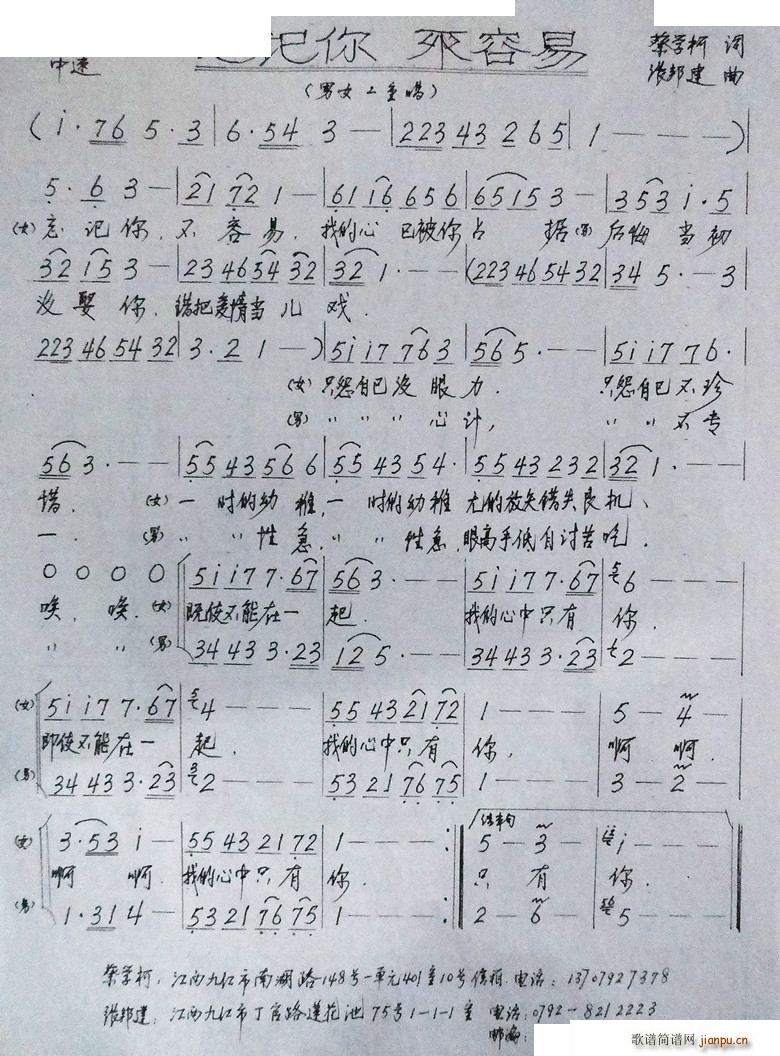 忘记你 不容易
蔡学柯 词
中速
张邦建 曲
(男女二重唱)
( i · 76 5 · 3 | 6 · 54 3 — | 223 43 2 6 5 | 1 — — — ) |
5 · 6 3 — | 21 72 1 — | 61 i6 65 6 | 65 i5 3 — | 3 53 i · 5
(女) 忘记你, 不容易, 我的心已被你占据 (男) 后悔当初
32 i5 3 — | 23 46 54 32 | 32 1 · — — | (223 46 54 32 | 34 5 · — 3
没娶你, 错把爱情当儿戏.
223 46 54 32 | 3 · 2 1 — ) | 5i i7 7 6 3 | 56 5 · — — | 5i i7 7 6 ·
(女) 只怨自己没眼力. 只怨自己不珍
(男) 〃 〃 〃 心计, 〃 〃 不专
56 3 · — — | 55 43 56 6 | 55 43 54 · | 55 43 232 | 32 1 · — —
惜. (女) 一时的幼稚, 一时的幼稚 尤的放失错失良机、
一. (男) 〃 〃 性急, 〃 〃 性急, 眼高手低自讨苦吃.
0 0 0 0 | 5i i7 7 · 67 | 56 3 · — — | 5i i7 7 · 67 | 6 — — —
唉, 唉. (女) 既使不能在一起. 我的心中只有你,
〃 〃 (男) 34 43 3 · 23 | 12 5 · — — | 34 43 3 · 23 | 2 — — —
(女) 5i i7 7 · 67 | 4 — — — | 55 43 21 72 | 1 — — — | 5 — 4 —
即使不能在一起. 我的心中只有你, 啊 啊.
(男) 34 43 3 · 23 | 2 — — — | 53 21 76 75 | 1 — — — | 3 — 2 —
结束句
(女) 3 · 53 i — | 55 43 21 72 | 1 — — — :‖ 5 — 3 — | i — — —
啊 啊. 我的心中只有你. 只有你.
(男) 1 · 31 4 — | 53 21 76 75 | 1 — — — :‖ 2 — 6 — | 5 — — —
蔡学柯, 江西九江市南湖路148号一单元401室10号信箱. 电话: 13707927378
张邦建, 江西九江市丁官路莲花池75号1-1-1室 电话: 0792-8212223
邮编:
歌谱简谱网
jianpu.cn